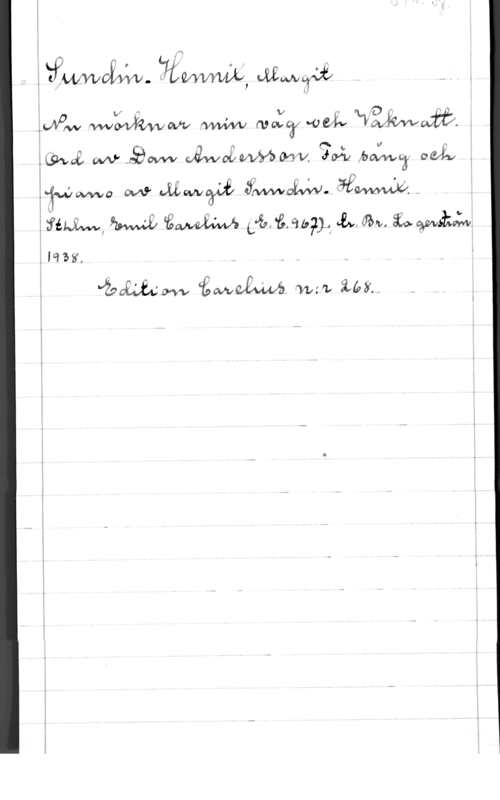 Sundin-Hennix, Margit
Nu mörknar min väg och Vaknatt.
Ord av Dan Andersson. För sång och
piano av Margit Sundin-Hennix.
Sthlm, Emil Carelius (E.C. 967), tr. Br. Lagerström
1938.
Edition Carelius n:r 268.